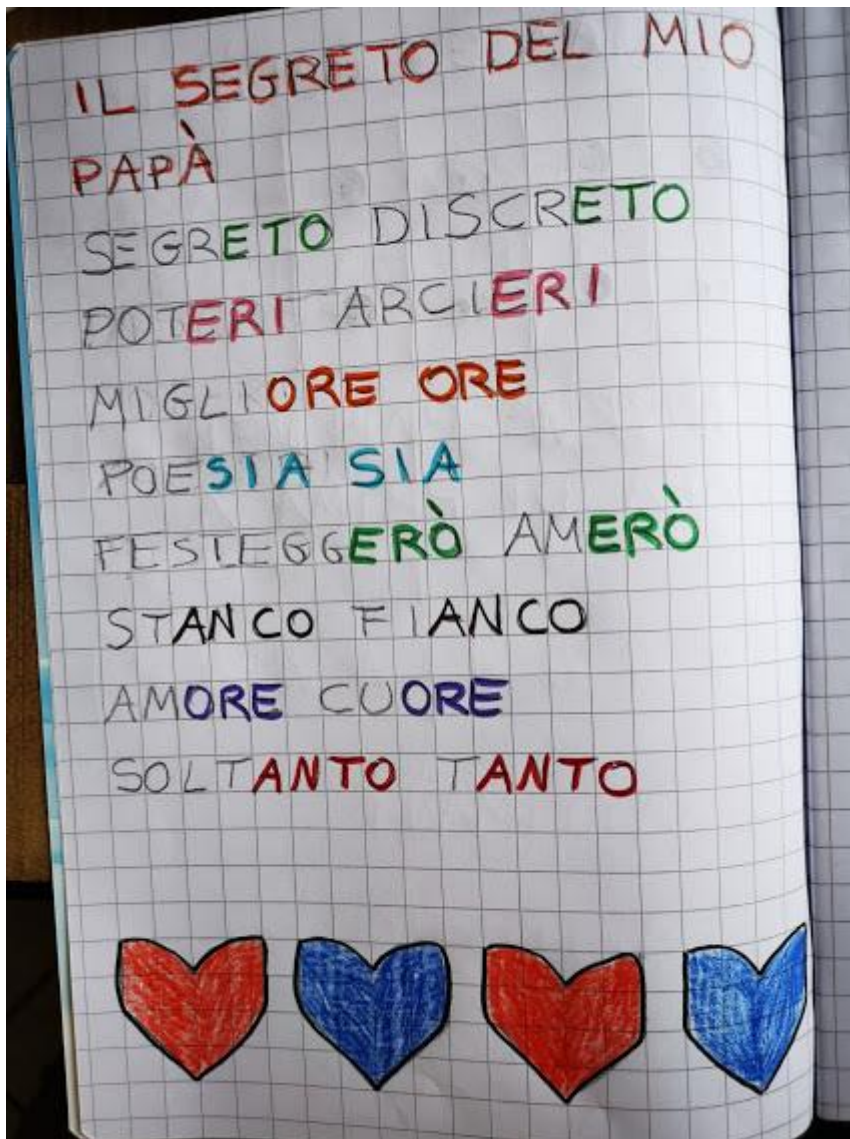 IL SEGRETO DEL MIO
PAPÀ
SEGRETO DISCRETO
POTERI ARCIERI
MIGLIORE ORE
POESIA SIA
FESTEGGERÒ AMERÒ
STANCO FIANCO
AMORE CUORE
SOLTANTO TANTO